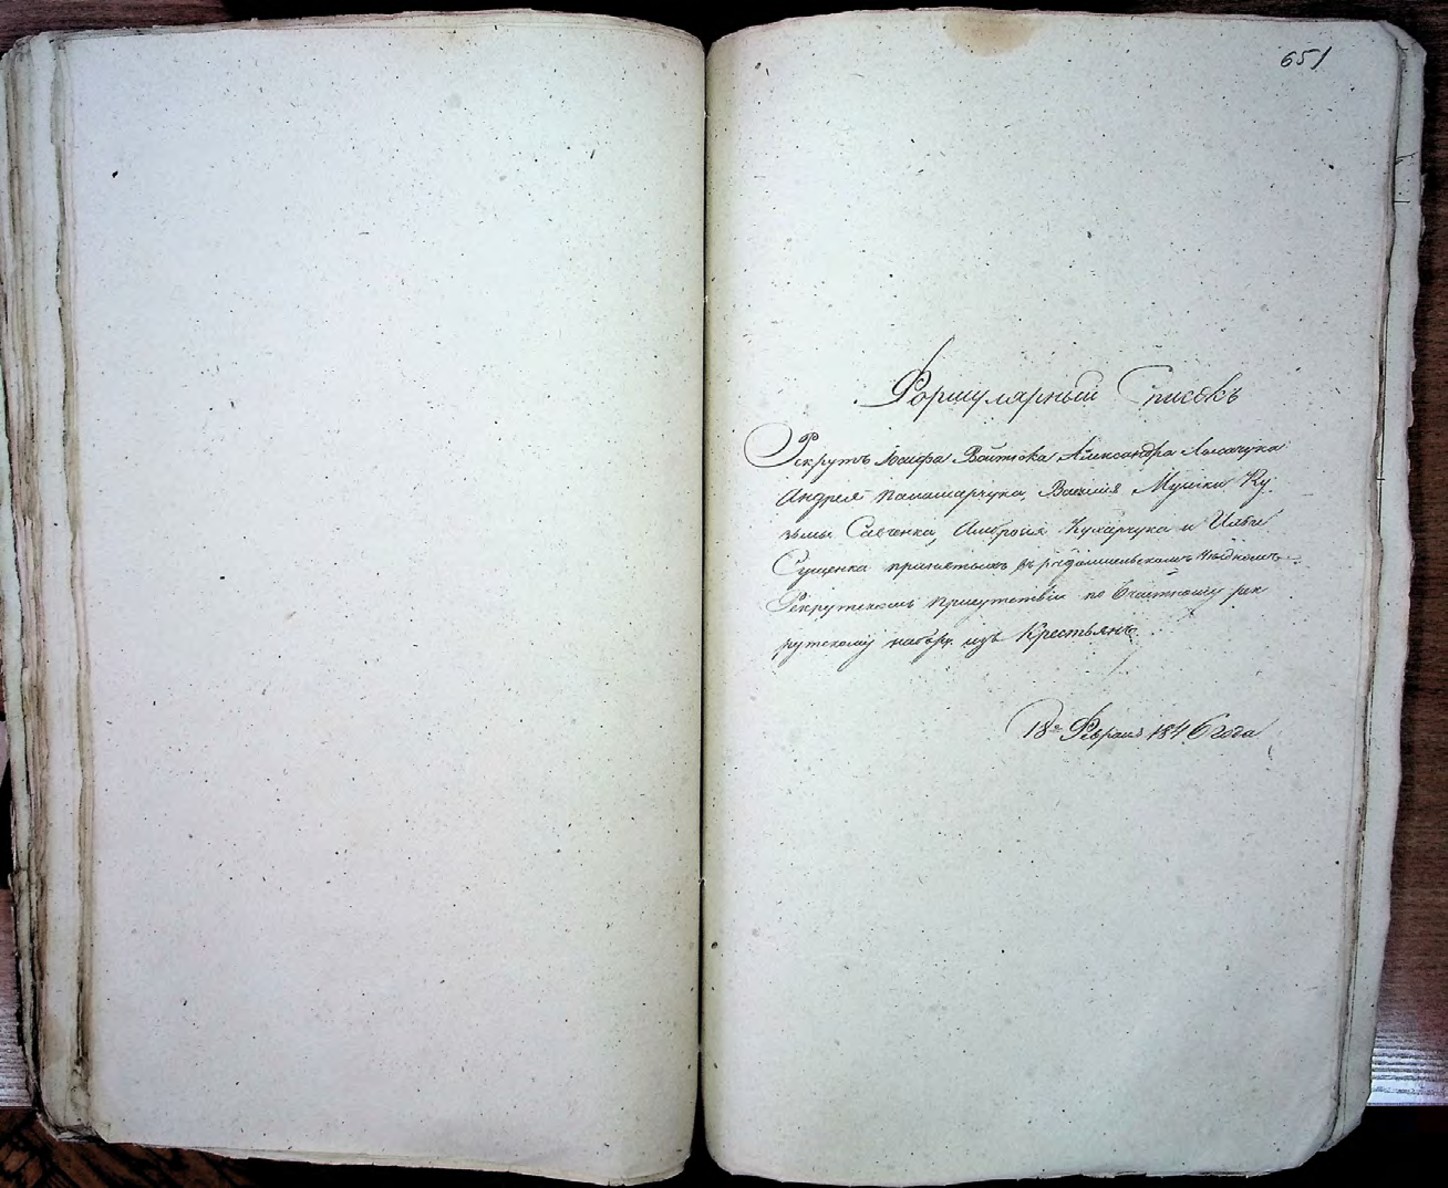 651
Формулярный Списокъ
Рекрутъ Іосифа Войтюка Александра
Андрея Паламарчука, Василія Мусіки Ку,
зьмы Савченка, Амброзія Кухарчука и Ильи
Сущенка принятыхъ въ радомысльскомъ уѣздномъ
Рекрутскомъ присутствіи по Частному рек
рутскому набору изъ Крестьянъ.
18го Февраля 1846 года